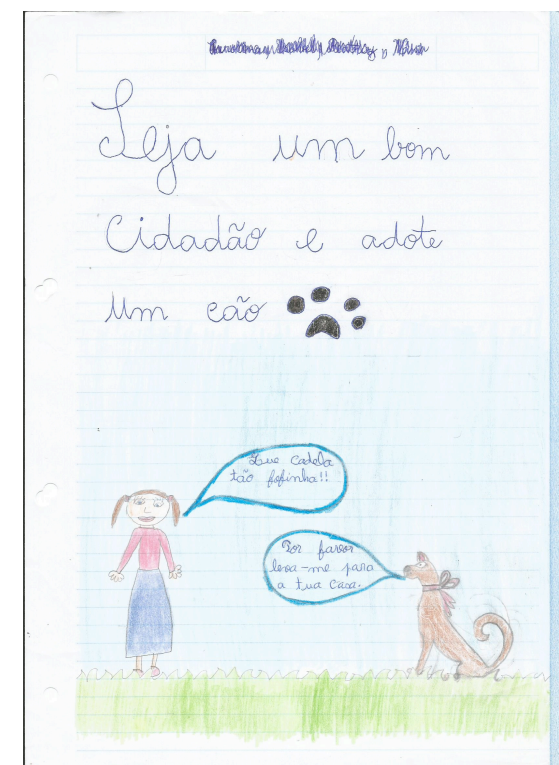 Seja um bom
Cidadão e adote
um cão
Que cadela
tão fofinha!!
Por favor
leva-me para
a tua casa.